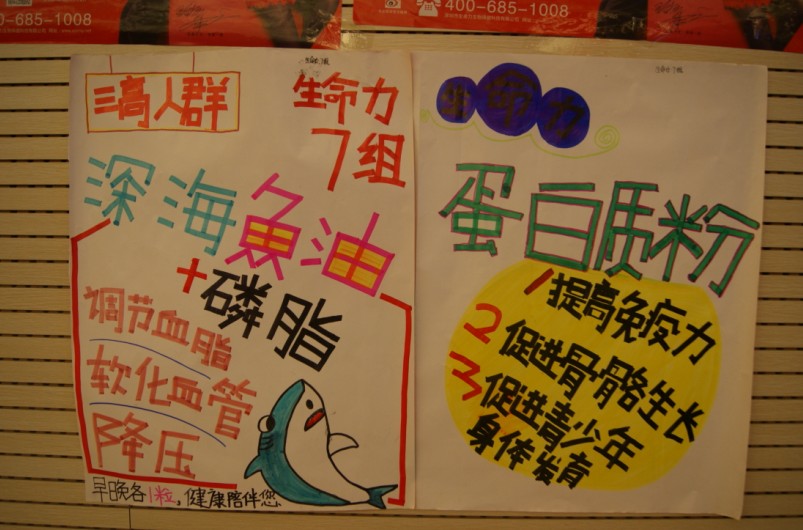 00-685-1008
400-685-1008
三高人群
生命力
7组
深海魚油
+磷脂
调节血脂
软化血管
降压
早晚各1粒,健康陪伴您
生命力
蛋白质粉
1提高免疫力
2促进骨骼生长
3促进青少年
身体发育